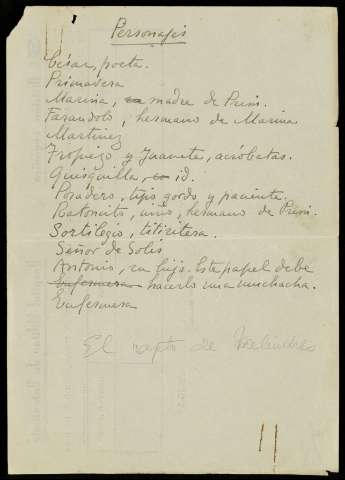 Personajes
César, poeta.
Primavera
Marina, madre de Prim.
Farandolo, hermano de Marina
Martinez
Tropiezo y Juanete, acróbatas.
Quisquilla, id.
Posadero, tipo gordo y paciente.
Ratoncito, niño, hermano de Prim.
Sortilegio, titiritera.
Señor de Solís
Antonio, su hijo. Este papel debe
hacerlo una muchacha.
Enfermera
El rapto de